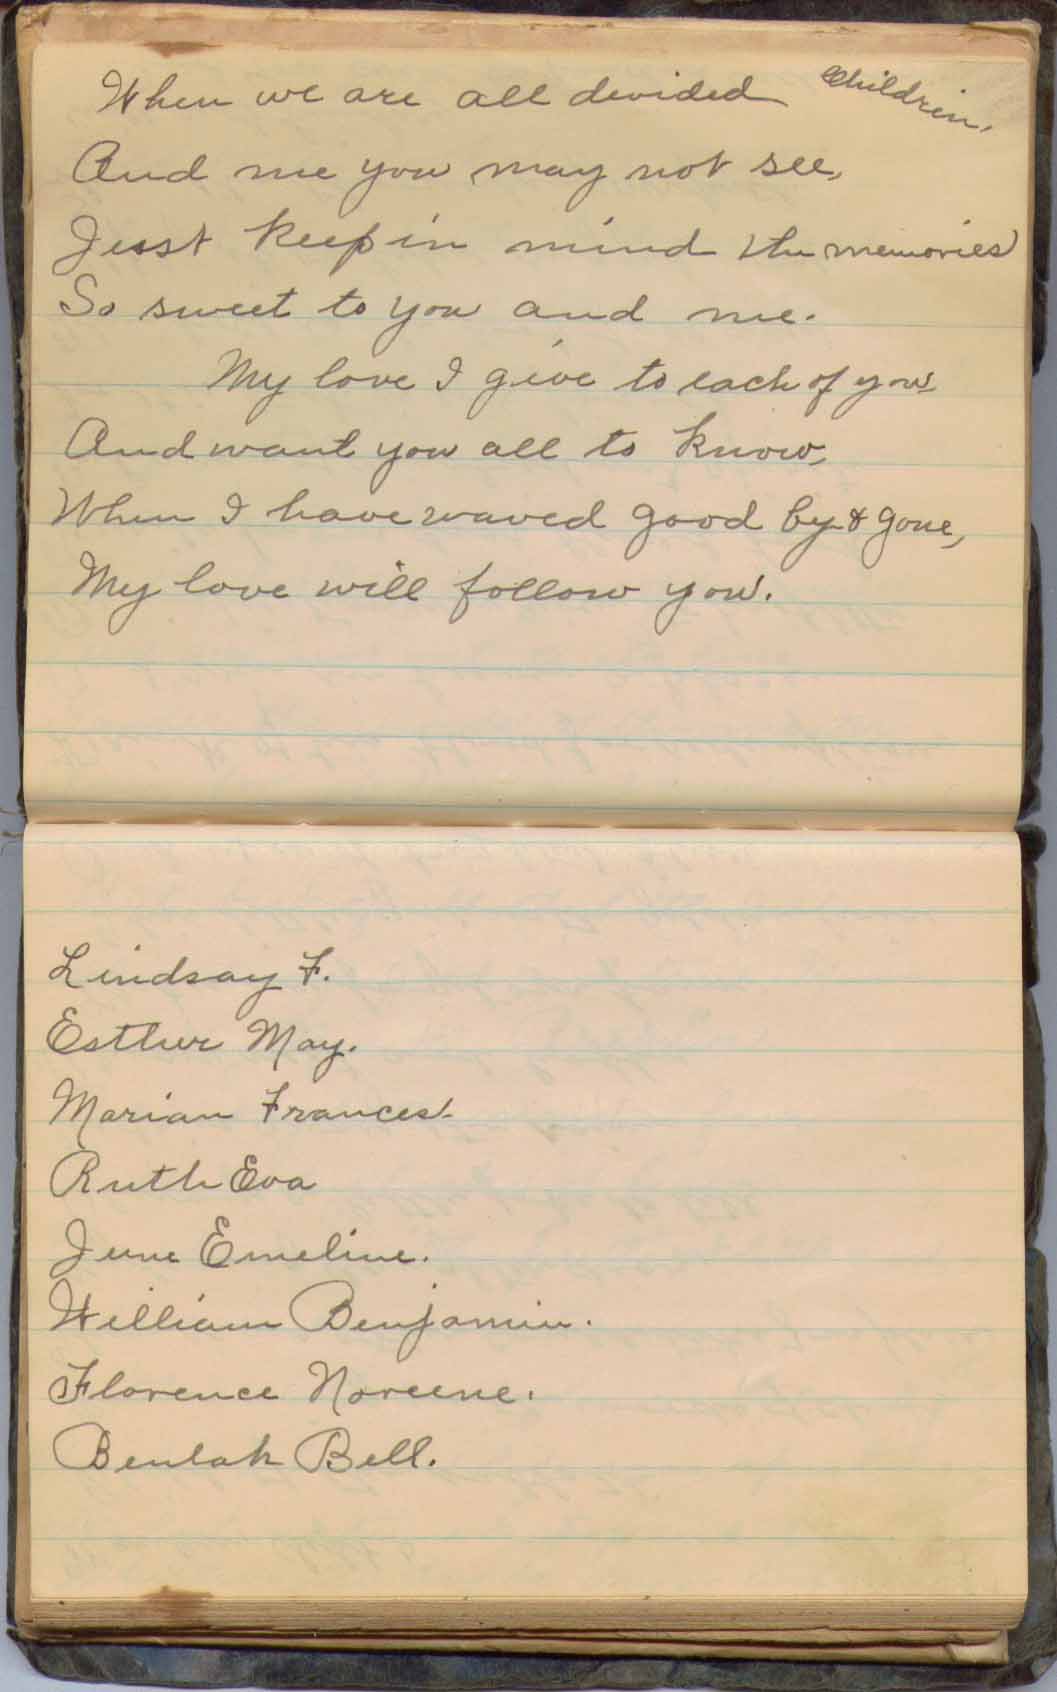 When we are all devided Children,
And me you may not see,
Jusst keep in mind the memories
So sweet to you and me.
My love I give to each of you
And want you all to know,
When I have waved good by & gone,
My love will follow you.
Lindsay F.
Esther May.
Marian Frances.
Ruth Eva
June Emeline.
William Benjamin.
Florence Noreene.
Beulah Bell.